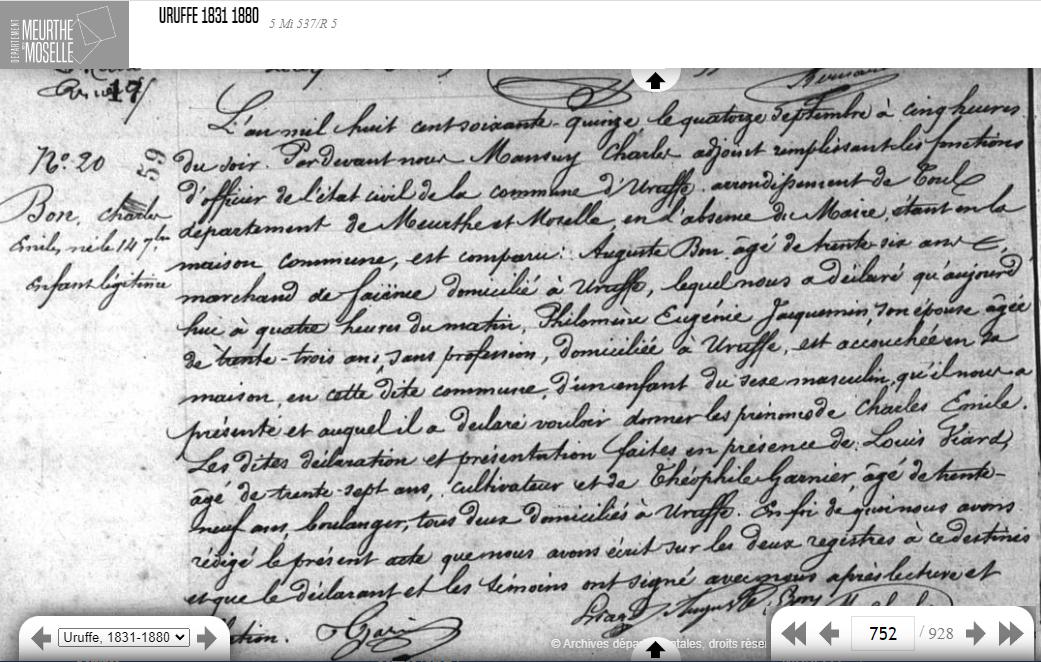 DÉPARTEMENT
MEURTHE
MOSELLE
URUFFE 1831 1880
5 Mi 537/R 5
17
N° 20
59
Bon, Charles
Emile, né le 14 7bre
Enfant légitime
L'an mil huit cent soixante-quinze le quatorze Septembre à cinq heures
du soir. Par devant nous Mansuy Charles adjoint remplissant les fonctions
d'officier de l'état civil de la commune d'Uruffe, arrondissement de Toul
département de Meurthe et Moselle, en l'absence du Maire, étant en la
maison commune, est comparu : Auguste Bon âgé de trente-six ans
marchand de faïence domicilié à Uruffe, lequel nous a déclaré qu'aujourd'
hui à quatre heures du matin, Philomène Eugénie Jacquemin, son épouse âgée
de trente-trois ans, sans profession, domiciliée à Uruffe, est accouchée en sa
maison en cette dite commune, d'un enfant du sexe masculin, qu'il nous a
présenté et auquel il a déclaré vouloir donner les prénoms de Charles Emile.
Les dites déclaration et présentation faites en présence de Louis Viard,
âgé de trente-sept ans, cultivateur et de Théophile Garnier, âgé de trente-
neuf ans, boulanger, tous deux domiciliés à Uruffe. En foi de quoi nous avons
rédigé le présent acte que nous avons écrit sur les deux registres à ce destinés
et que le déclarant et les témoins ont signé avec nous après lecture et
Auguste
© Archives départementales, droits réser
Uruffe, 1831-1880
752 / 928